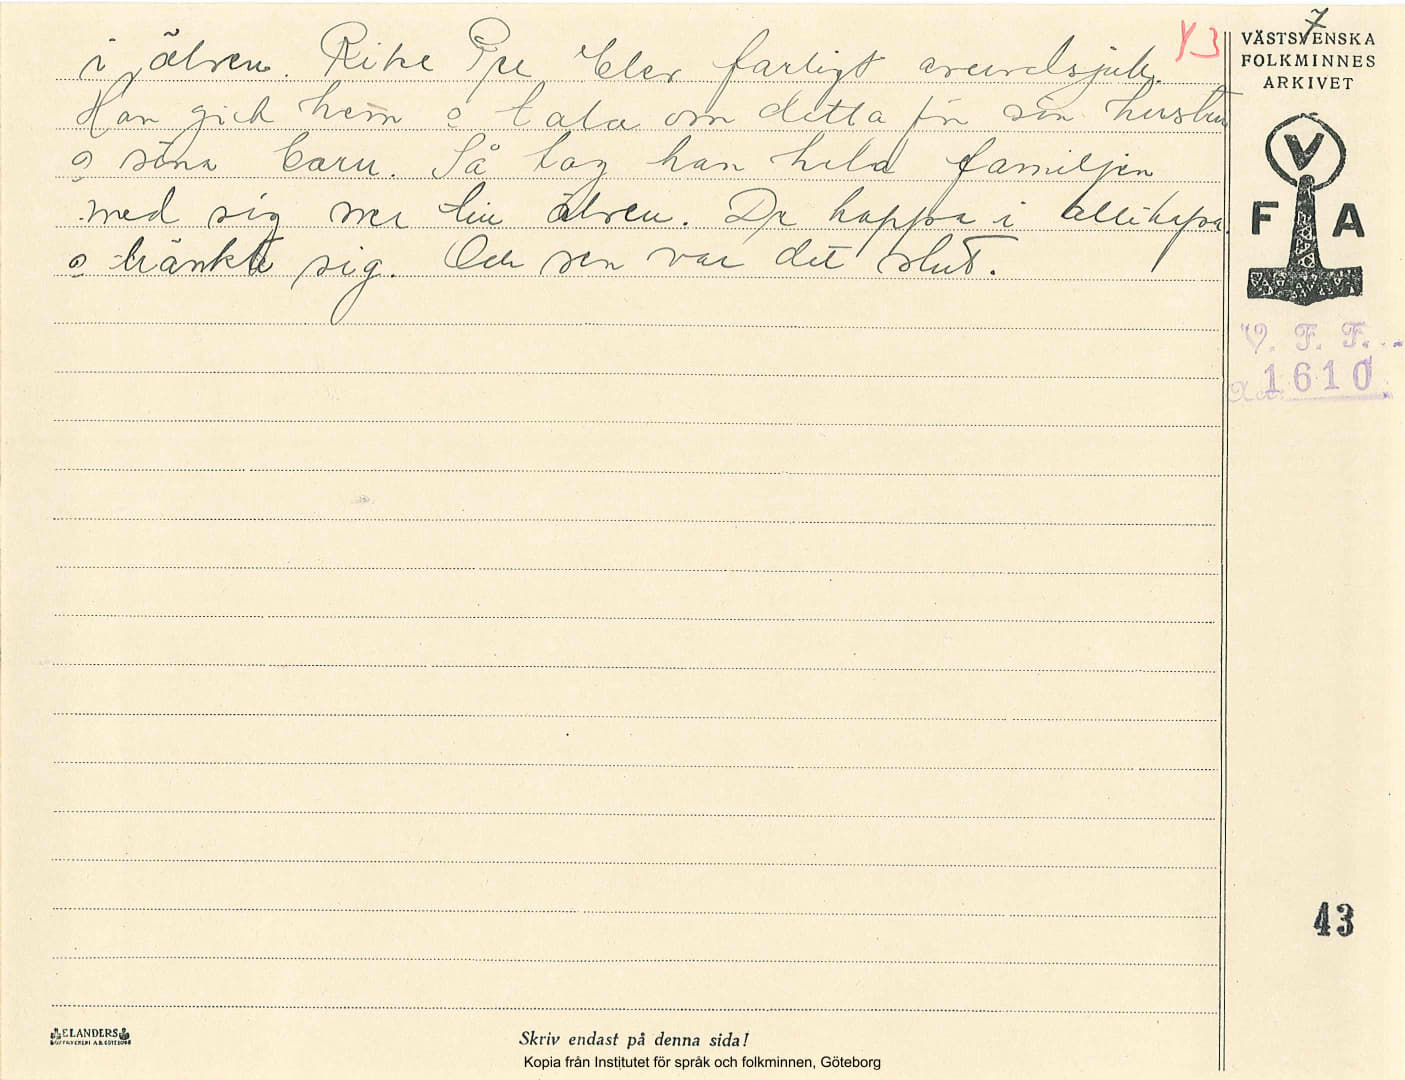 i älven. Rike Ppe blev farligt avundsjuk.
Han gick hem o tala om detta för sin hustru
o sina barn. Så tog han hela familjen
med sig ner till älven. Di hoppa i allihopa
o dränkte sig. Och sen var det slut.
Y3
7
VÄSTSVENSKA
FOLKMINNES
ARKIVET
V
F A
V. F. F.
1610
43
ELANDERS
BOKTRYCKERI A.B. GÖTEBORG
Skriv endast på denna sida!
Kopia från Institutet för språk och folkminnen, Göteborg